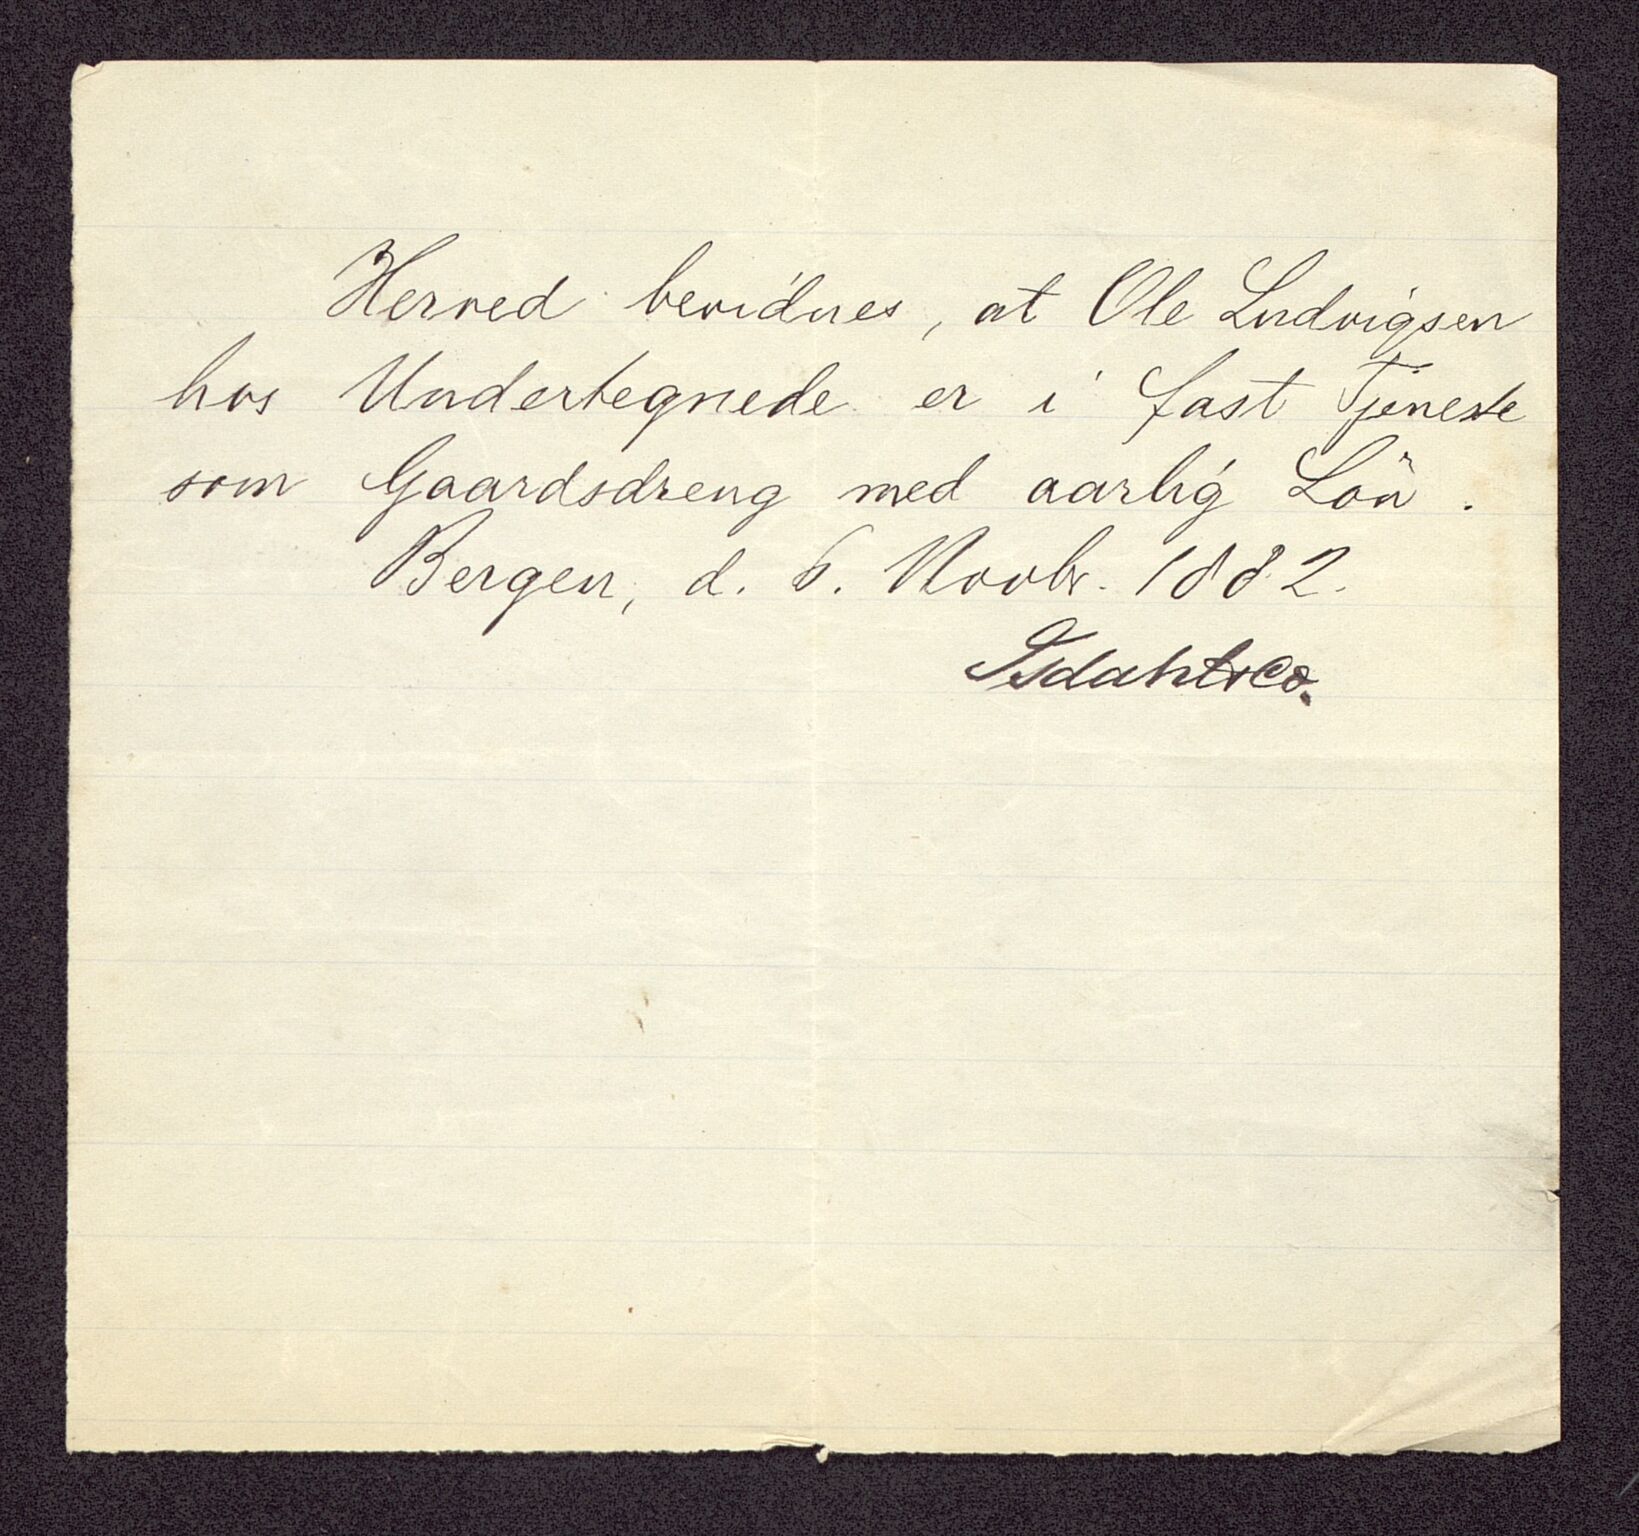 Herved bevidnes, at Ole Ludvigsen
hos Undertegnede er i fast Tjeneste
som Gaardsdreng med aarlig Lön.
Bergen, d. 6. Novbr. 1882.
Isdahl & Co.